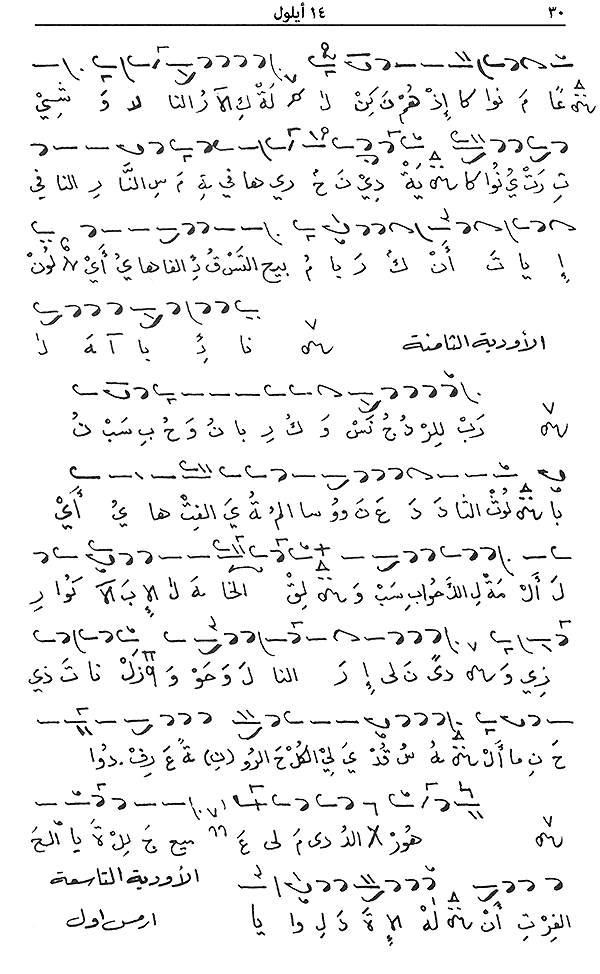 ٣٠ ١٤ أيلول
عًا مَ نوا كا إِذْ هُمْ نَ كِنْ لا لَةْ كِ الآ رُ النا لا وَ شَيْ
تِ رَتْ يُ نُوا كا يَةْ دِيْ نَ خُ دي ها في ةِ مَ سِ النَّا رِ النا في
إِ يا تَ أَنْ كُ رَ با مُ بيح التَسْ قُ ذِ الفا ها يُ أَيْ لُونْ
الأودية الثامنة نا ئِ با آ هَ لا
رَبْ لِلرْ دُ جُ نَسْ وَ كُ رِ با نُ وَ حُ بِ سَبْ نُ
بًا لُوْثْ الثا دَ دَ عَ نَ وو سا المُ ةُ يَ الفِتْ ها يُ أَيْ
لَ أَلْ مَةْ لِ وابِ سَبْ وَ لِقْ الخا هَ لا الإِ بَ الآ كَوا رِ
زِي وَ دىً نَ لى إِ رَ النا لَ وَ حَوْ وَ زَلْ نا تَ ذي
حَ نِ ما أَلْ هُ سُ قُدْ يَ لِيْ الكُلْ حَ الرُو (نِ) ةً عَ رِفْ. دُوا
هُورْ الدُ دى مَ لى عَ بيع جَ لِلْ ةَ يا الحَ
الأودية التاسعة
الفِرْ تِ أَنْ لَهْ الإِ ةَ دَ لِ وا يا ارمس اول